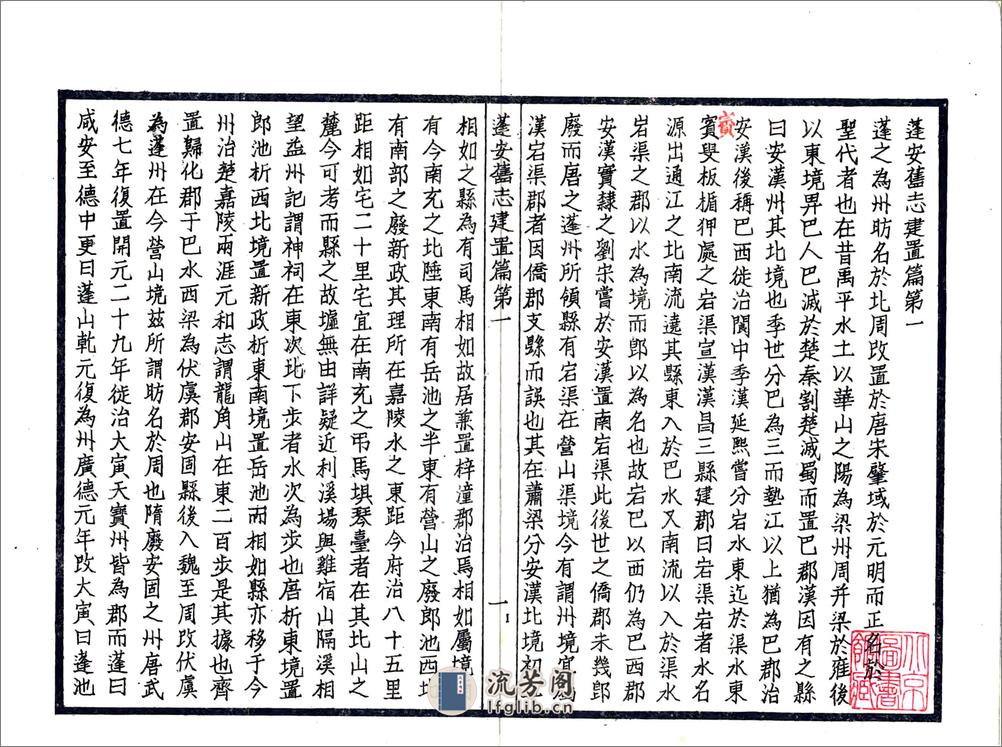 蓬安舊志建置篇第一
蓬之為州昉名於北周改置於唐宋肇域於元明而正名於
聖代者也在昔禹平水土以華山之陽為梁州周并梁於雍後
以東境畀巴人巴滅於楚秦割楚滅蜀而置巴郡漢因有之縣
曰安漢州其北境也季世分巴為三而墊江以上猶為巴郡治
安漢後稱巴西徙治閬中季漢延熙嘗分宕水東迄於渠水東
賨
賓叟板楯狎處之宕渠宣漢漢昌三縣建郡曰宕渠宕者水名
源出通江之北南流遶其縣東入於巴水又南流以入於渠水
宕渠之郡以水為境而郎以為名也故宕巴以西仍為巴西郡
安漢實隸之劉宋嘗於安漢置南宕渠此後世之僑郡未幾郎
廢而唐之蓬州所領縣有宕渠在營山渠境今有謂州境官為
漢宕渠郡者因僑郡支縣而誤也其在蕭梁分安漢北境初
蓬安舊志建置篇第一
一
相如之縣為有司馬相如故居兼置梓潼郡治焉相如屬境
有今南充之北陲東南有岳池之半東有營山之廢郎池西北
有南部之廢新政其理所在嘉陵水之東距今府治八十五里
距相如宅二十里宅宜在南充之弔馬垻琴臺者在其北山之
麓今可考而縣之故墟無由詳疑近利溪場與雞宿山隔溪相
望益州記謂神祠在東次北下步者水次為步也唐析東境置
郎池析西北境置新政析東南境置岳池而相如縣亦移于今
州治楚嘉陵兩涯元和志謂龍角山在東二百步是其據也齊
置歸化郡于巴水西梁為伏虞郡安固縣後入魏至周改伏虞
為蓬州在今營山境茲所謂昉名於周也隋廢安固之州唐武
德七年復置開元二十九年徙治大寅天寶州皆為郡而蓬曰
咸安至德中更曰蓬山乾元復為州廣德元年改大寅曰蓬池
北京
圖書
館藏
流芳阁
lfglib.cn